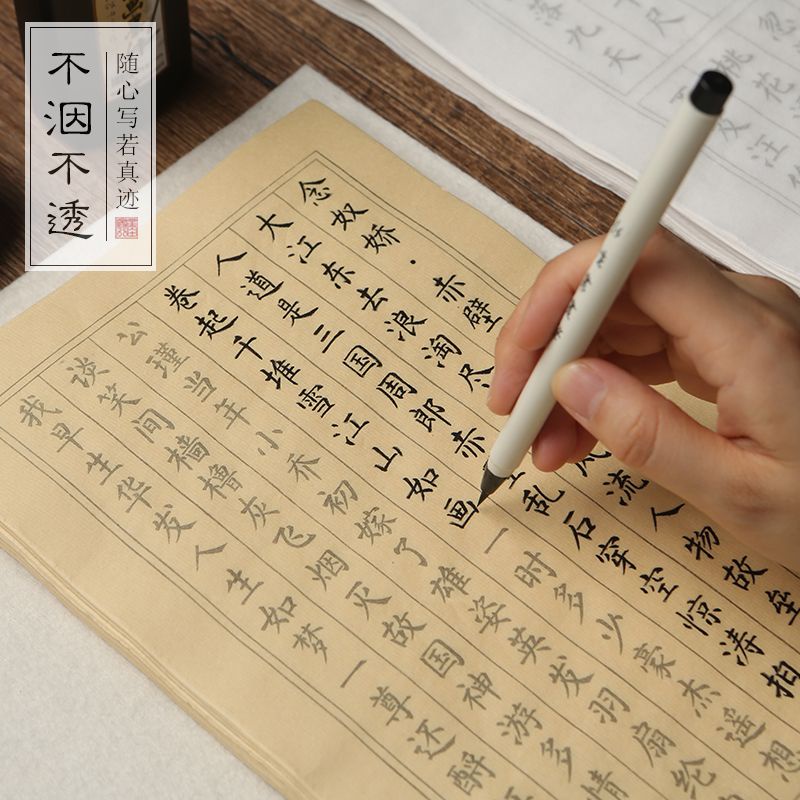 不洇不透
随心写若真迹
念奴娇·赤壁
大江东去浪淘尽
流人物故垒
人道是三国周郎赤
乱石穿空惊涛拍
卷起千堆雪江山如画一时多少豪杰遥想
公瑾当年小乔初嫁了雄姿英发羽扇纶
谈笑间樯橹灰飞烟灭故国神游多情
我早生华发人生如梦一尊还酹
忽
桃花
汪
尺
落九天